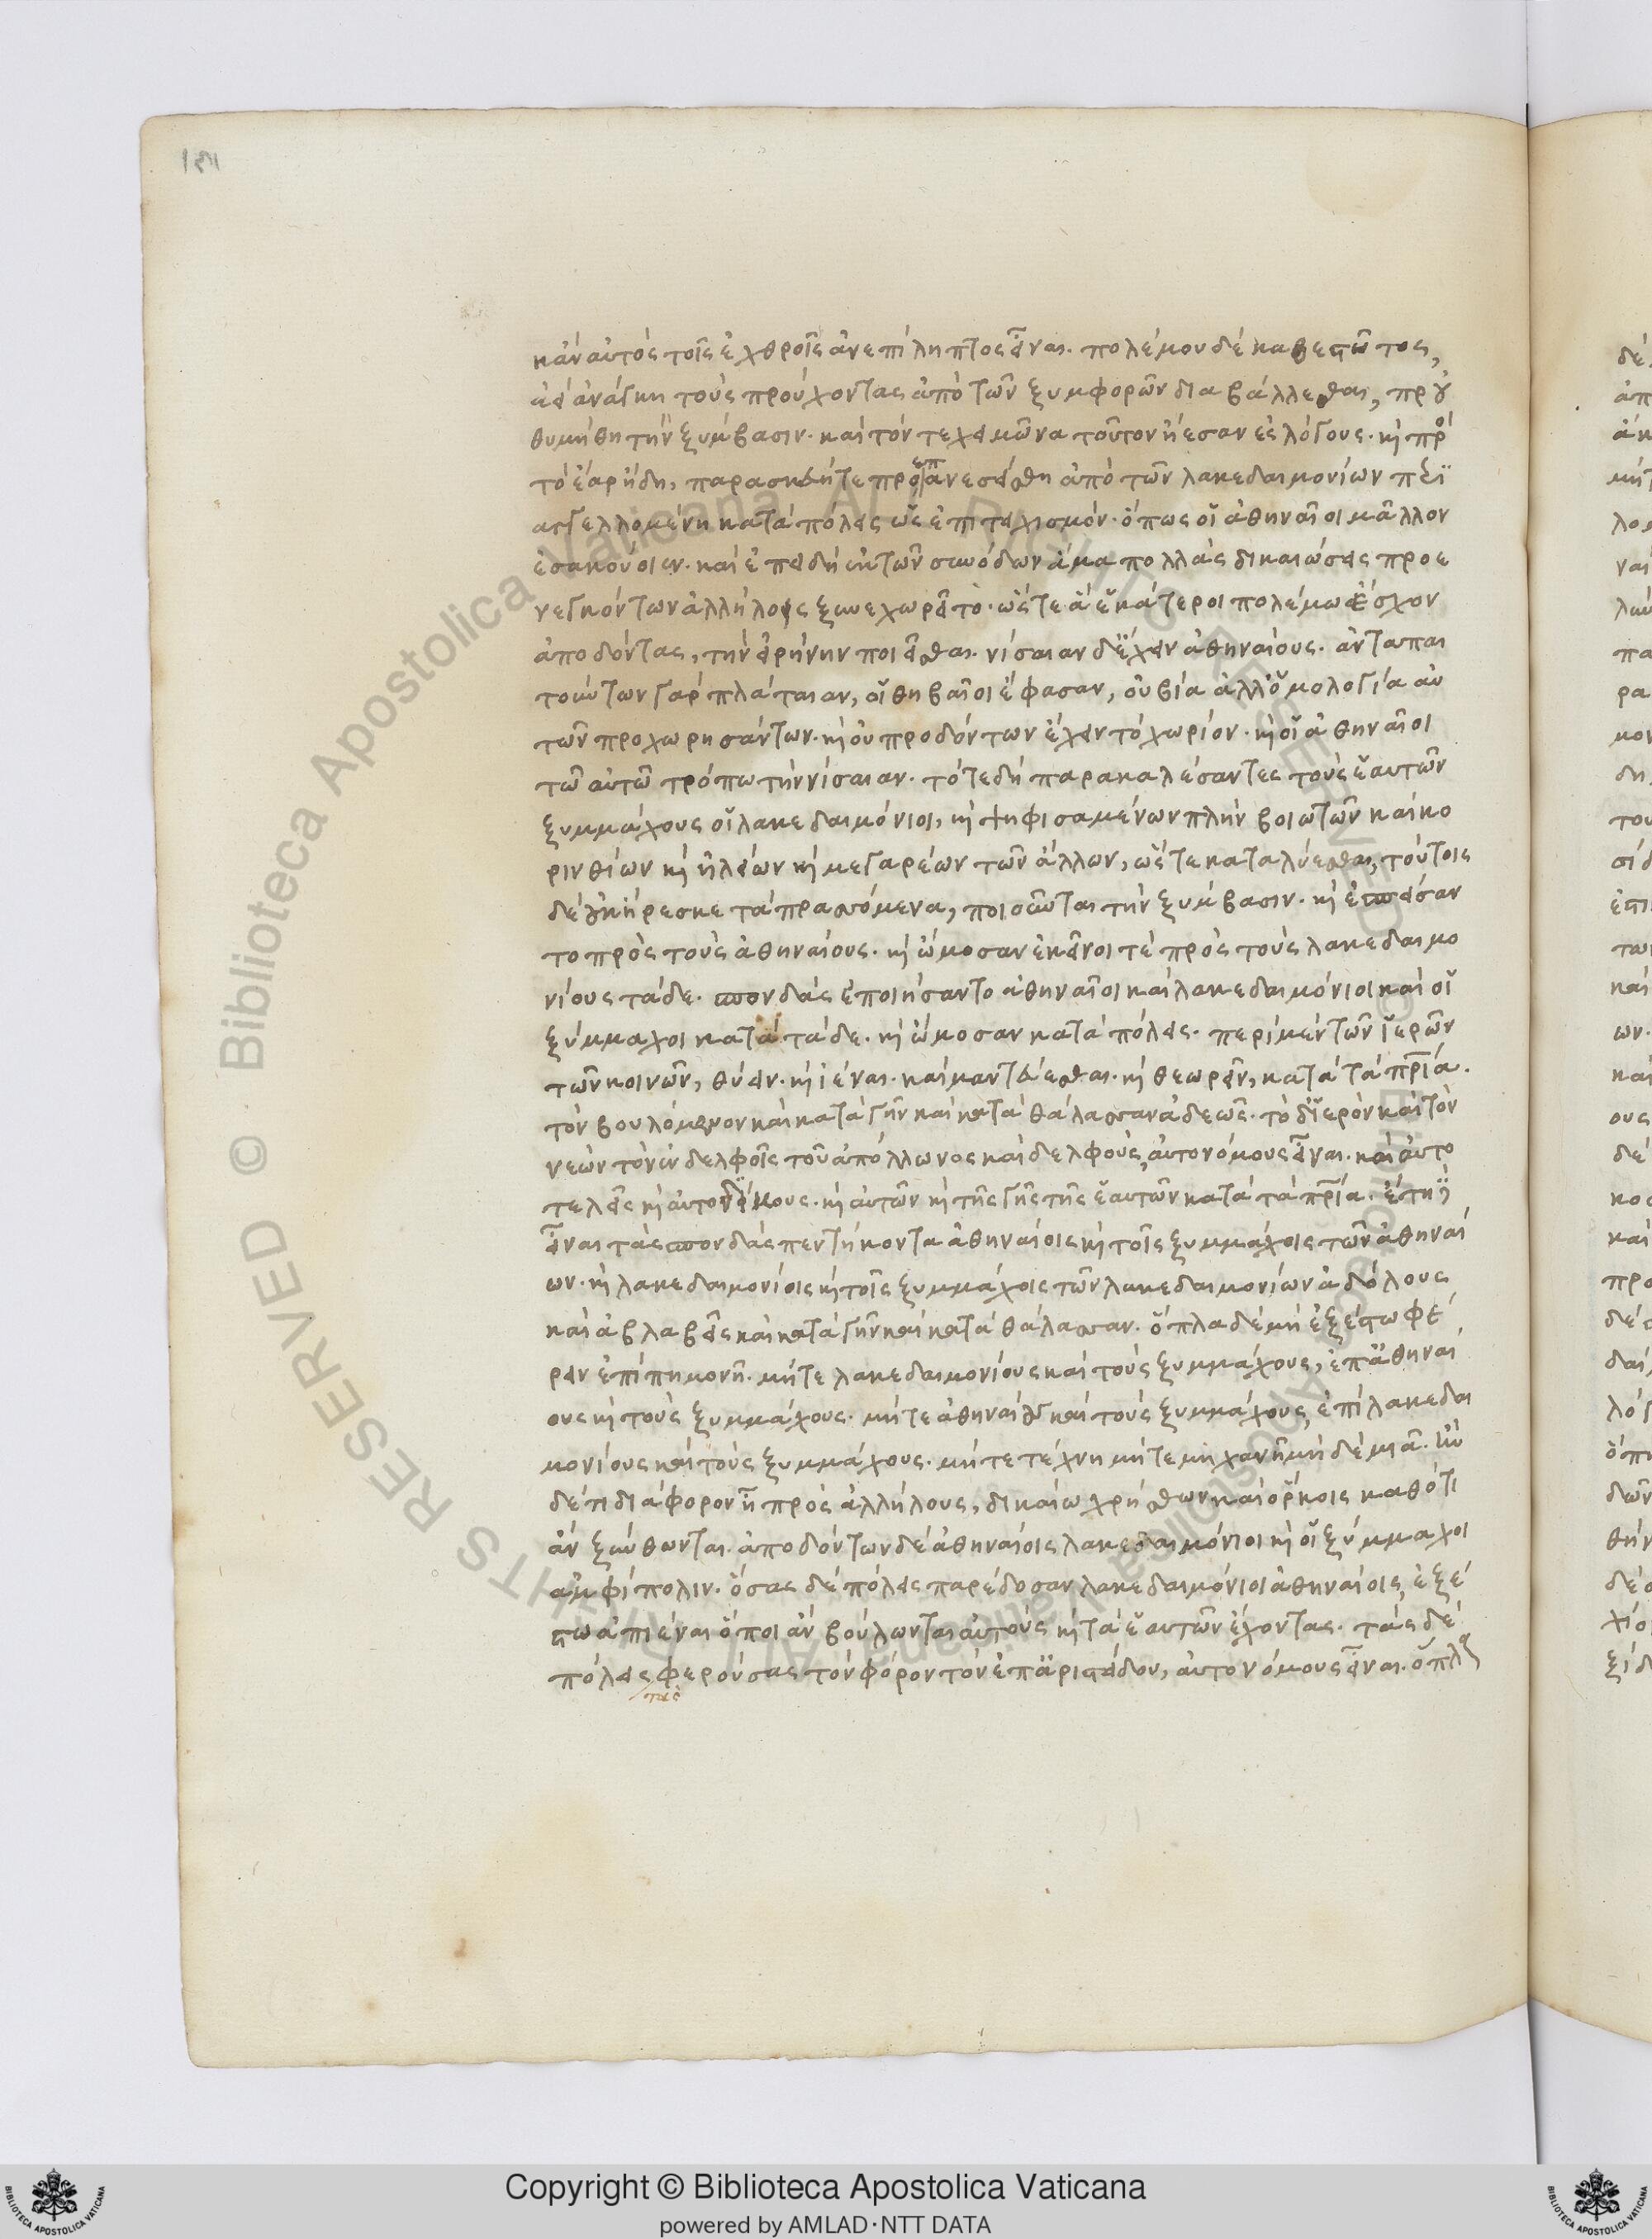 κἂν αὐτὸς τοῖς ἐχθροῖς ἀνεπίληπτος εἶναι. πολέμου δὲ καθεστῶτος,
ἀεὶ ἀνάγκη τοὺς προύχοντας ἀπὸ τῶν ξυμφορῶν διαβάλλεσθαι, πρου
θυμήθη τὴν ξύμβασιν. καὶ τόν τε χειμῶνα τοῦτον ᾔεσαν ἐς λόγους. κὶ πρὸς
τὸ ἔαρ ἤδη, παρασκευή τε προεπανεσείσθη ἀπὸ τῶν λακεδαιμονίων περι
αγγελλομένη κατὰ πόλεις ὡς ἐπιτειχισμόν. ὅπως οἱ ἀθηναῖοι μᾶλλον
ἐσακούοιεν. καὶ ἐπειδὴ ἐκ τῶν συνόδων ἅμα πολλὰς δικαιώσεις προε
νεγκόντων ἀλλήλοις ξυνεχωρεῖτο. ὥστε ἃ ἑκάτεροι πολέμω ἔσχον
ἀποδόντας, τὴν εἰρήνην ποιεῖσθαι. νίσαιαν δ' ἔχειν ἀθηναίους. ἀνταπαι
τούντων γὰρ πλάταιαν, οἱ θηβαῖοι ἔφασαν, οὐ βία ἀλλ' ὁμολογία αὐ
τῶν προχωρησάντων. κὶ οὐ προδόντων ἔχειν τὸ χωρίον. κὶ οἱ ἀθηναῖοι
τῶ αὐτῶ τρόπω τὴν νίσαιαν. τότε δὴ παρακαλέσαντες τοὺς ἑαυτῶν
ξυμμάχους οἱ λακεδαιμόνιοι, κὶ ψηφισαμένων πλὴν βοιωτῶν καὶ κο
ρινθίων κὶ ἠλείων κὶ μεγαρέων τῶν ἄλλων, ὥστε καταλύεσθαι, τούτοις
δὲ οὐκ ἤρεσκε τὰ πρασσόμενα, ποιοῦνται τὴν ξύμβασιν. κὶ ἐσπείσαν
το πρὸς τοὺς ἀθηναίους. κὶ ὤμοσαν ἐκεῖνοι τὲ πρὸς τοὺς λακεδαιμο
νίους τάδε. σπονδὰς ἐποιήσαντο ἀθηναῖοι καὶ λακεδαιμόνιοι καὶ οἱ
ξύμμαχοι κατὰ τάδε. κὶ ὤμοσαν κατὰ πόλεις. περὶ μὲν τῶν ἱερῶν
τῶν κοινῶν, θύειν. κὶ ἰέναι. καὶ μαντεύεσθαι. κὶ θεωρεῖν, κατὰ τὰ πρια.
τὸν βουλόμενον καὶ κατὰ γῆν καὶ κατὰ θάλασσαν ἀδεῶς. τὸ δ' ἱερὸν καὶ τὸν
νεὼν τὸν ἐν δελφοῖς τοῦ ἀπόλλωνος καὶ δελφοὺς, αὐτονόμους εἶναι. καὶ αὐτο
τελεῖς κὶ αὐτοδίκους. κὶ αὐτῶν κὶ τῆς γῆς τῆς ἑαυτῶν κατὰ τὰ πρια. ἔτη
εἶναι τὰς σπονδὰς πεντήκοντα ἀθηναίοις κὶ τοῖς ξυμμάχοις τῶν ἀθηναί
ων. κὶ λακεδαιμονίοις κὶ τοῖς ξυμμάχοις τῶν λακεδαιμονίων ἀδόλους
καὶ ἀβλαβεῖς καὶ κατὰ γῆν καὶ κατὰ θάλασσαν. ὅπλα δὲ μὴ ἐξέστω φέ
ρειν ἐπὶ πημονῆ. μήτε λακεδαιμονίους καὶ τοὺς ξυμμάχους, ἐπ' ἀθηναί
ους κὶ τοὺς ξυμμάχους. μήτε ἀθηναίους καὶ τοὺς ξυμμάχους, ἐπὶ λακεδαι
μονίους καὶ τοὺς ξυμμάχους. μήτε τέχνη μήτε μηχανῆ μὴδὲ μιᾶ. ἢν
δέ τι διάφορον ἦ πρὸς ἀλλήλους, δικαίω χρήσθων καὶ ὅρκοις καθότι
ἂν ξύνθωνται. ἀποδόντων δὲ ἀθηναίοις λακεδαιμόνιοι κὶ οἱ ξύμμαχοι
αμφίπολιν. ὅσας δὲ πόλεις παρέδοσαν λακεδαιμόνιοι ἀθηναίοις, ἐξέ
στω ἀπιέναι ὅποι ἂν βούλωνται αὐτοὺς κὶ τὰ ἑαυτῶν ἔχοντας. τὰς δὲ
πόλεις φερούσας τὸν φόρον τὸν ἐπ' ἀριστείδου, αὐτονόμους εἶναι. ὅπλα
τὰς
Copyright © Biblioteca Apostolica Vaticana
powered by AMLAD·NTT DATA